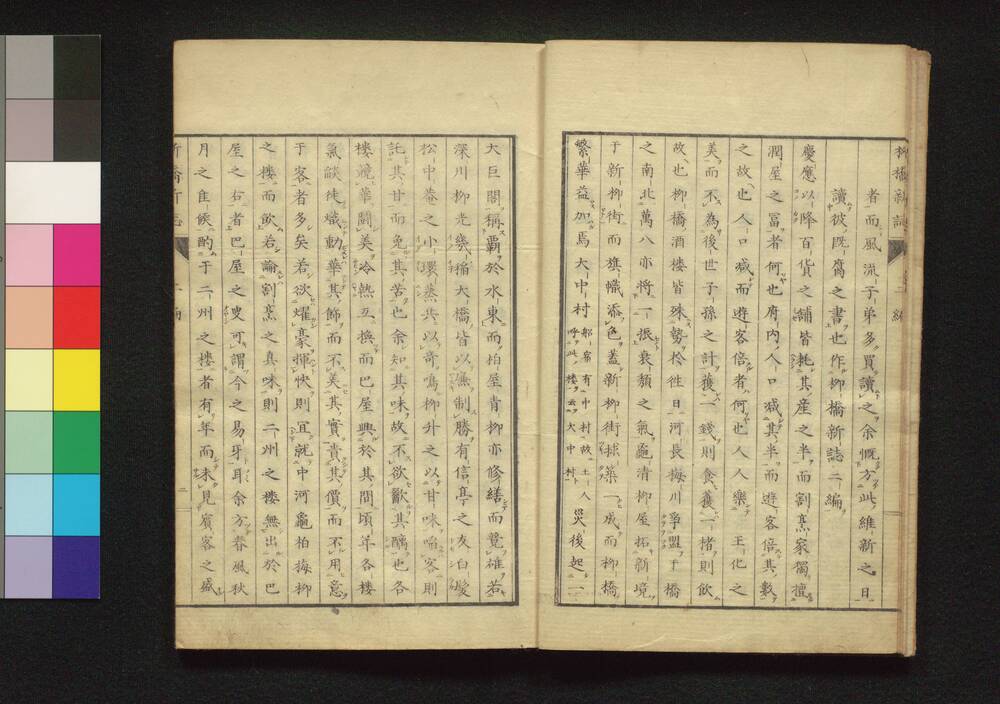 柳橋新誌 二編
者而風流子弟多買讀之余慨方此維新之日
讀彼既腐之書也作柳橋新誌二編
慶應以降百貨之舗皆耗其産之半而割烹家獨擅
潤屋之冨者何也府內人口減其半而遊客倍其數
之故也人口減而遊客倍者何也人人樂王化之
美而不為後世子孫之計獲一錢則食獲一楮則飲
故也柳橋酒樓皆殊勢於徃日河長梅川爭盟于橋
之南北萬八亦將一振衰頽之氣龜清柳屋拓新境
于新柳街而旗幟添色蓋新柳街捄築一成而柳橋
繁華益加焉大中村 郷席有中村故土人呼此樓云大中村 災後起一
大巨閣稱覇於水東而柏屋青柳亦修繕而覽雄若
深川柳光幾稲大橋皆以無制勝有信亭之友白髮
松中菴之小環蒸共以奇鳴柳升之以甘味啗客則
託其甘而免其苦也余知其味故不欲歠其醨也各
樓競華鬪美冷熱互換而巴屋興於其間頃年各樓
氣燄徒熾動華其飾而不美其實貴其價而不用意
于客者多矣若欲燿豪揮快則宜就中河龜柏梅柳
之樓而飲若論割烹之真味則二州之樓無出於巴
屋之右者巴屋之叟可謂今之易牙耳余方春風秋
月之佳候酌于二州之樓者有年而未見賓客之盛